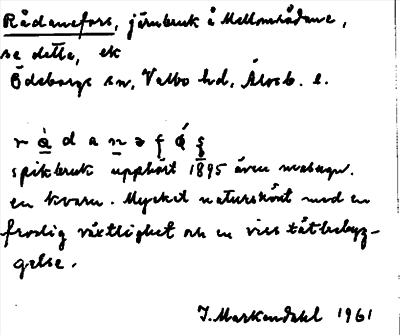 Rådanefors, järnbruk å Mellområdane,
se detta, etc
Ödeborgs sn, Valbo hd, Älvsb. l.
r å d a n ə f ǫ ʂ
spikbruk upphört 1895 även masugn.
en kvarn. Mycket naturskönt med en
frodig växtlighet och en viss tätbebyg-
gelse.
J. Markendahl 1961